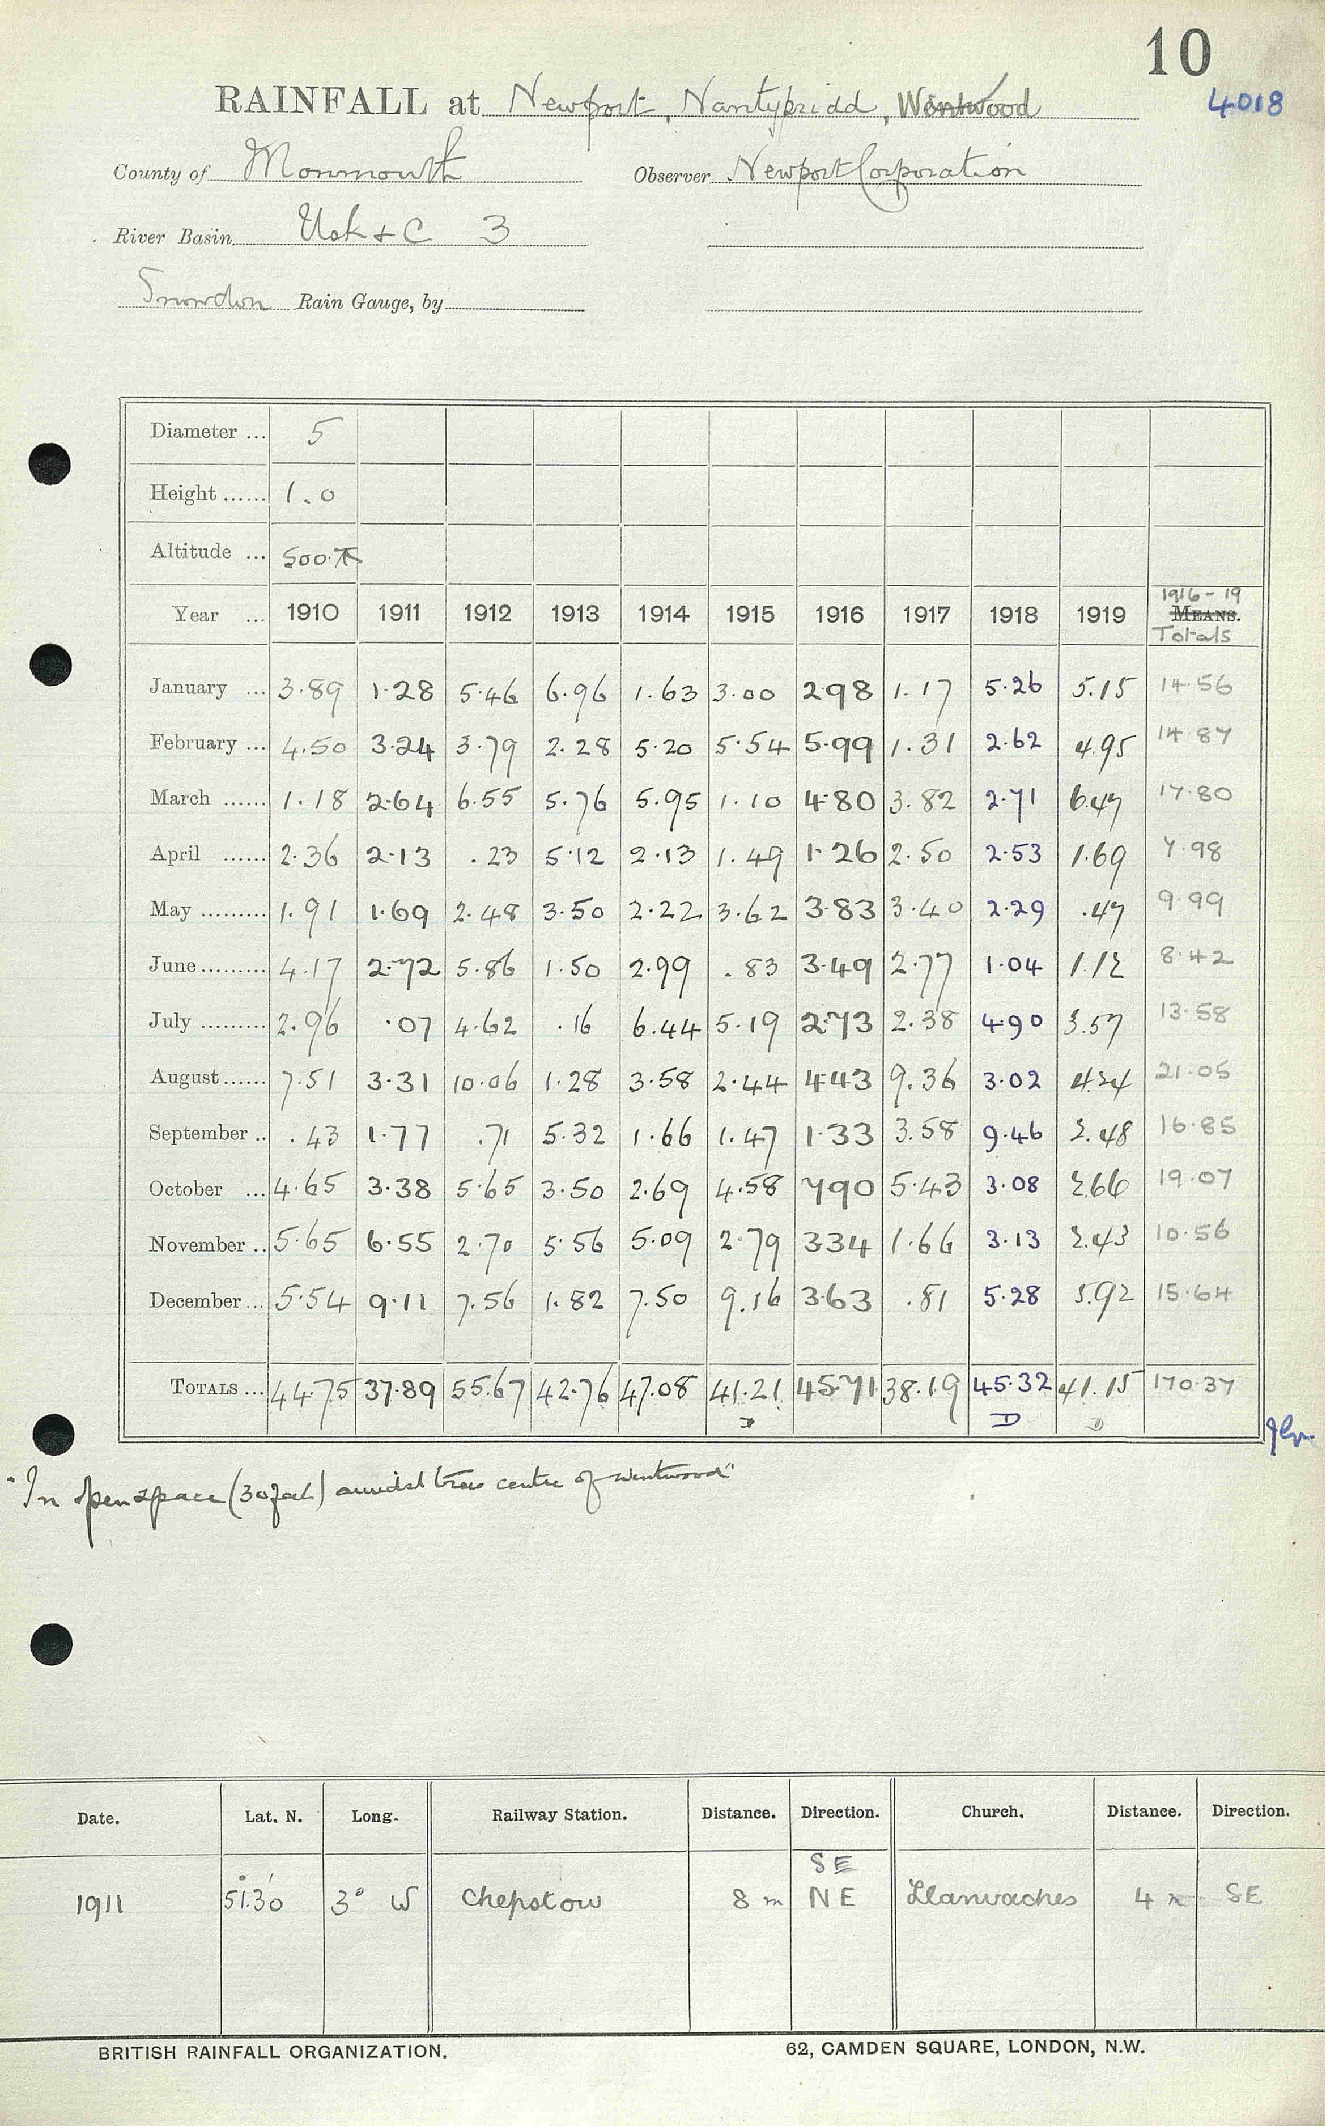 10
RAINFALL at Newport, Nantypridd, Wentwood 4018
County of Monmouth Observer Newport Corporation
River Basin Usk & C 3
Snowdon Rain Gauge, by
Diameter ... 5
Height ...... 1.0
Altitude ... 500
1916-19
Year ... 1910 1911 1912 1913 1914 1915 1916 1917 1918 1919 MEANS.
Totals
January ... 3.89 1.28 5.46 6.96 1.63 3.00 2.98 1.17 5.26 5.15 14.56
February ... 4.50 3.24 3.79 2.28 5.20 5.54 5.99 1.31 2.62 4.95 14.87
March ...... 1.18 2.64 6.55 5.76 5.95 1.10 4.80 3.82 2.71 6.47 17.80
April ...... 2.36 2.13 .23 5.12 2.13 1.49 1.26 2.50 2.53 1.69 7.98
May ......... 1.91 1.69 2.48 3.50 2.22 3.62 3.83 3.40 2.29 .47 9.99
June ......... 4.17 2.72 5.86 1.50 2.99 .83 3.49 2.77 1.04 1.12 8.42
July ......... 2.96 .07 4.62 .16 6.44 5.19 2.73 2.38 4.90 3.57 13.58
August ...... 7.51 3.31 10.06 1.28 3.58 2.44 4.43 9.36 3.02 4.24 21.05
September .. .43 1.77 .71 5.32 1.66 1.47 1.33 3.58 9.46 2.48 16.85
October ... 4.65 3.38 5.65 3.50 2.69 4.58 7.90 5.43 3.08 2.66 19.07
November .. 5.65 6.55 2.70 5.56 5.09 2.79 3.34 1.66 3.13 2.43 10.56
December ... 5.54 9.11 7.56 1.82 7.50 9.16 3.63 .81 5.28 5.92 15.64
TOTALS ... 44.75 37.89 55.67 42.76 47.08 41.21 45.71 38.19 45.32 41.15 170.37
D D D
"In open space (30 feet) amidst trees centre of Wentwood"
Date. Lat. N. Long. Railway Station. Distance. Direction. Church. Distance. Direction.
SE
1911 51°30' 3° W Chepstow 8 m NE Llanvaches 4 m SE
BRITISH RAINFALL ORGANIZATION. 62, CAMDEN SQUARE, LONDON, N.W.